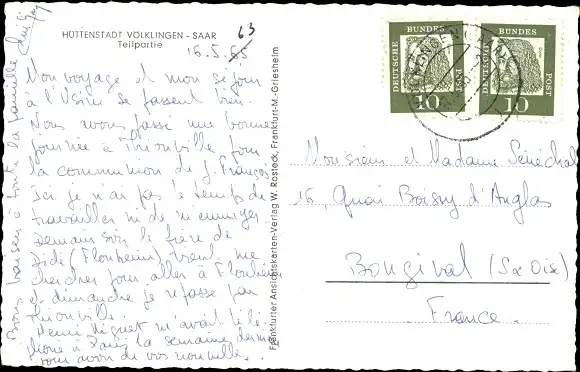 HÜTTENSTADT VÖLKLINGEN - SAAR
Teilpartie
63
16.5.65
Mon voyage et mon séjour
à l'Usine se passent bien.
Nous avons passé une bonne
journée à Thionville pour
la communion de J. François
Ici je n'ai pas le temps de
travailler ni de m'ennuyer
Demain soir le frère de
Didi (Florheim) vient me
chercher pour aller à
et dimanche je repasse par
Thionville.
Henri m'avait télé-
phoné à Paris la semaine dernière
pour avoir de vos nouvelles.
Bons baisers à toute la famille
Frankfurter Ansichtskarten-Verlag W. Rosteck, Frankfurt-M.-Griesheim
DEUTSCHE BUNDESPOST
10
DEUTSCHE BUNDESPOST
10
Monsieur et Madame Sénéchal
16, Quai Boissy d'Anglas
Bougival (S et Oise)
France